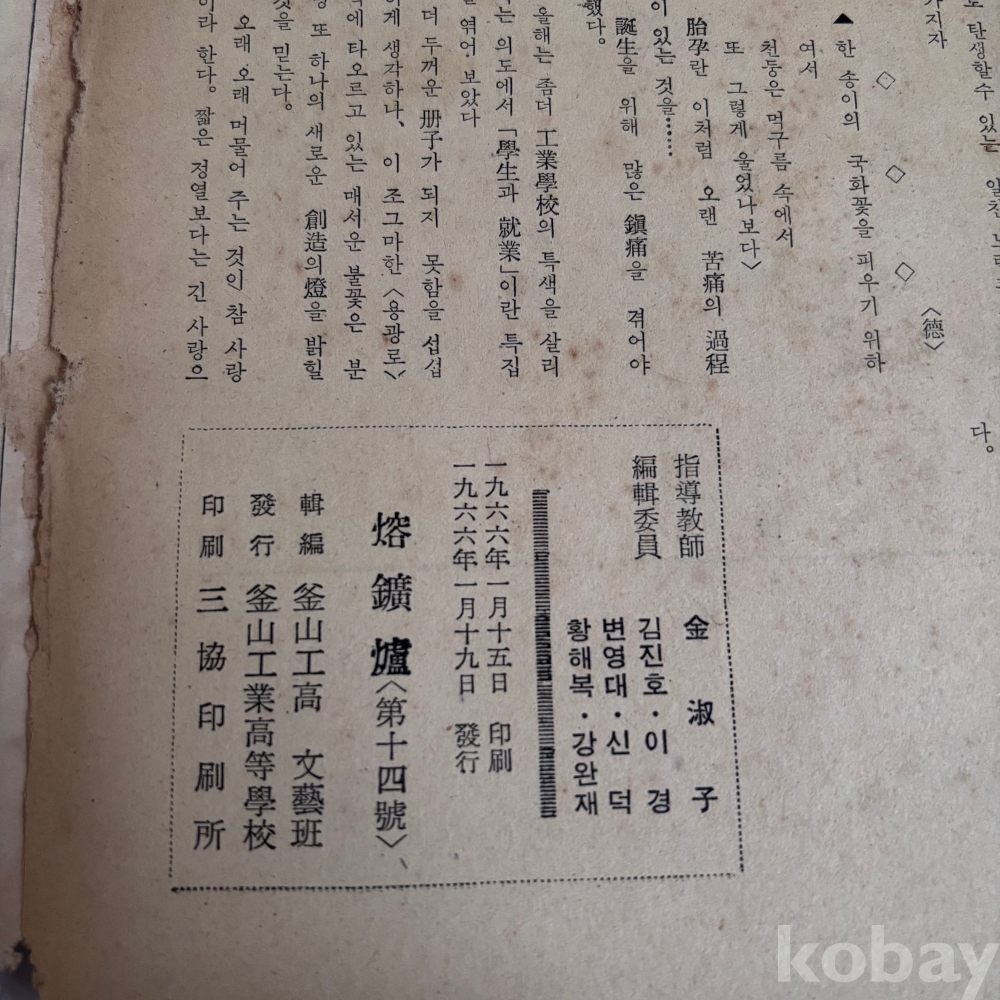 로 탄생할수 있는
가지자
◇ ◇ ◇
〈德〉
▲한 송이의 국화꽃을 피우기 위하
여서
천둥은 먹구름 속에서
또 그렇게 울었나보다〉
胎孕란 이처럼 오랜 苦痛의 過程
이 있는 것을……
誕生을 위해 많은 鎭痛을 겪어야
했다.
올해는 좀더 工業學校의 특색을 살리
는 의도에서 「學生과 就業」이란 특집
을 엮어 보았다
더 두꺼운 册子가 되지 못함을 섭섭
하게 생각하나, 이 조그마한 〈용광로〉
에 타오르고 있는 매서운 불꽃은 분
또 하나의 새로운 創造의 燈을 밝힐
것을 믿는다.
오래 오래 머물어 주는 것인 참 사랑
이라 한다. 짧은 정열보다는 긴 사랑으
다.
指導教師 金淑子
編輯委員 김진호·이 경
변영대·신 덕
황해복·강완재
一九六六年一月十五日 印刷
一九六六年一月十九日 發行
熔鑛爐〈第十四號〉
輯編 釜山工高 文藝班
發行 釜山工業高等學校
印刷 三協印刷所
kobay